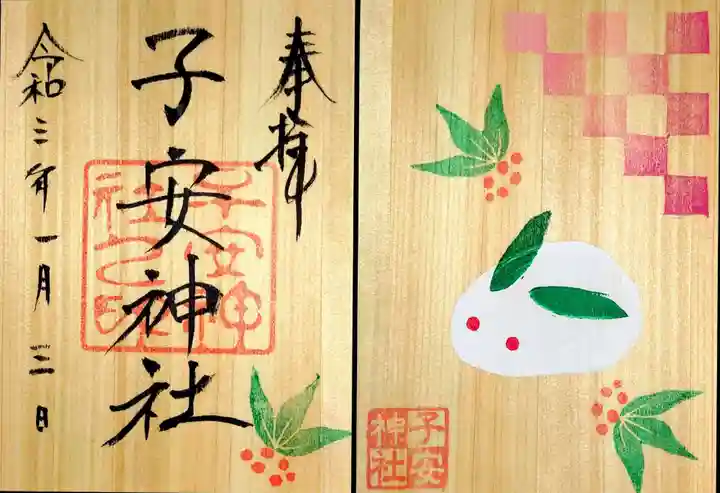 奉拝
子安神社
令和三年一月三日
子安神社之印
子安
神社